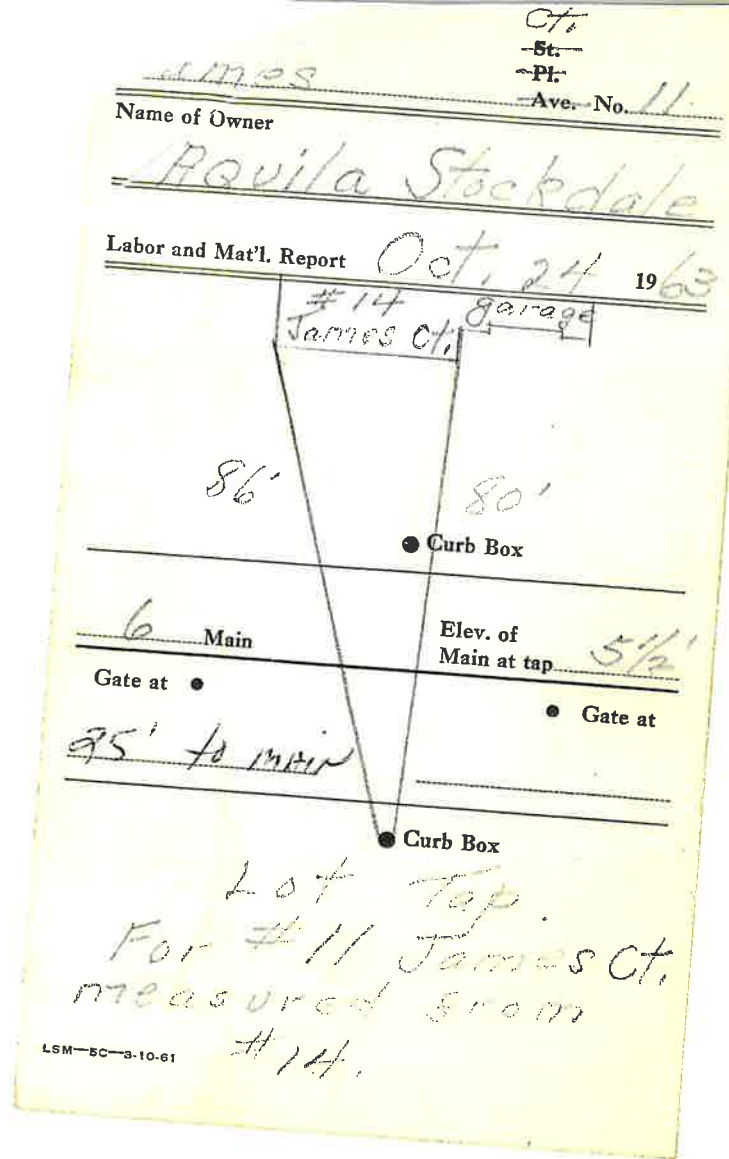 Ct.
St.
Pl.
James Ave. No. 11
Name of Owner
Aquila Stockdale
Labor and Mat'l. Report Oct. 24 1963
#14 garage
James Ct.
86' 80'
Curb Box
6 Main Elev. of
Main at tap 5 1/2'
Gate at Gate at
25' to main
Curb Box
Lot Tap.
For #11 James Ct.
measured from
#14.
LSM-5C-3-10-61